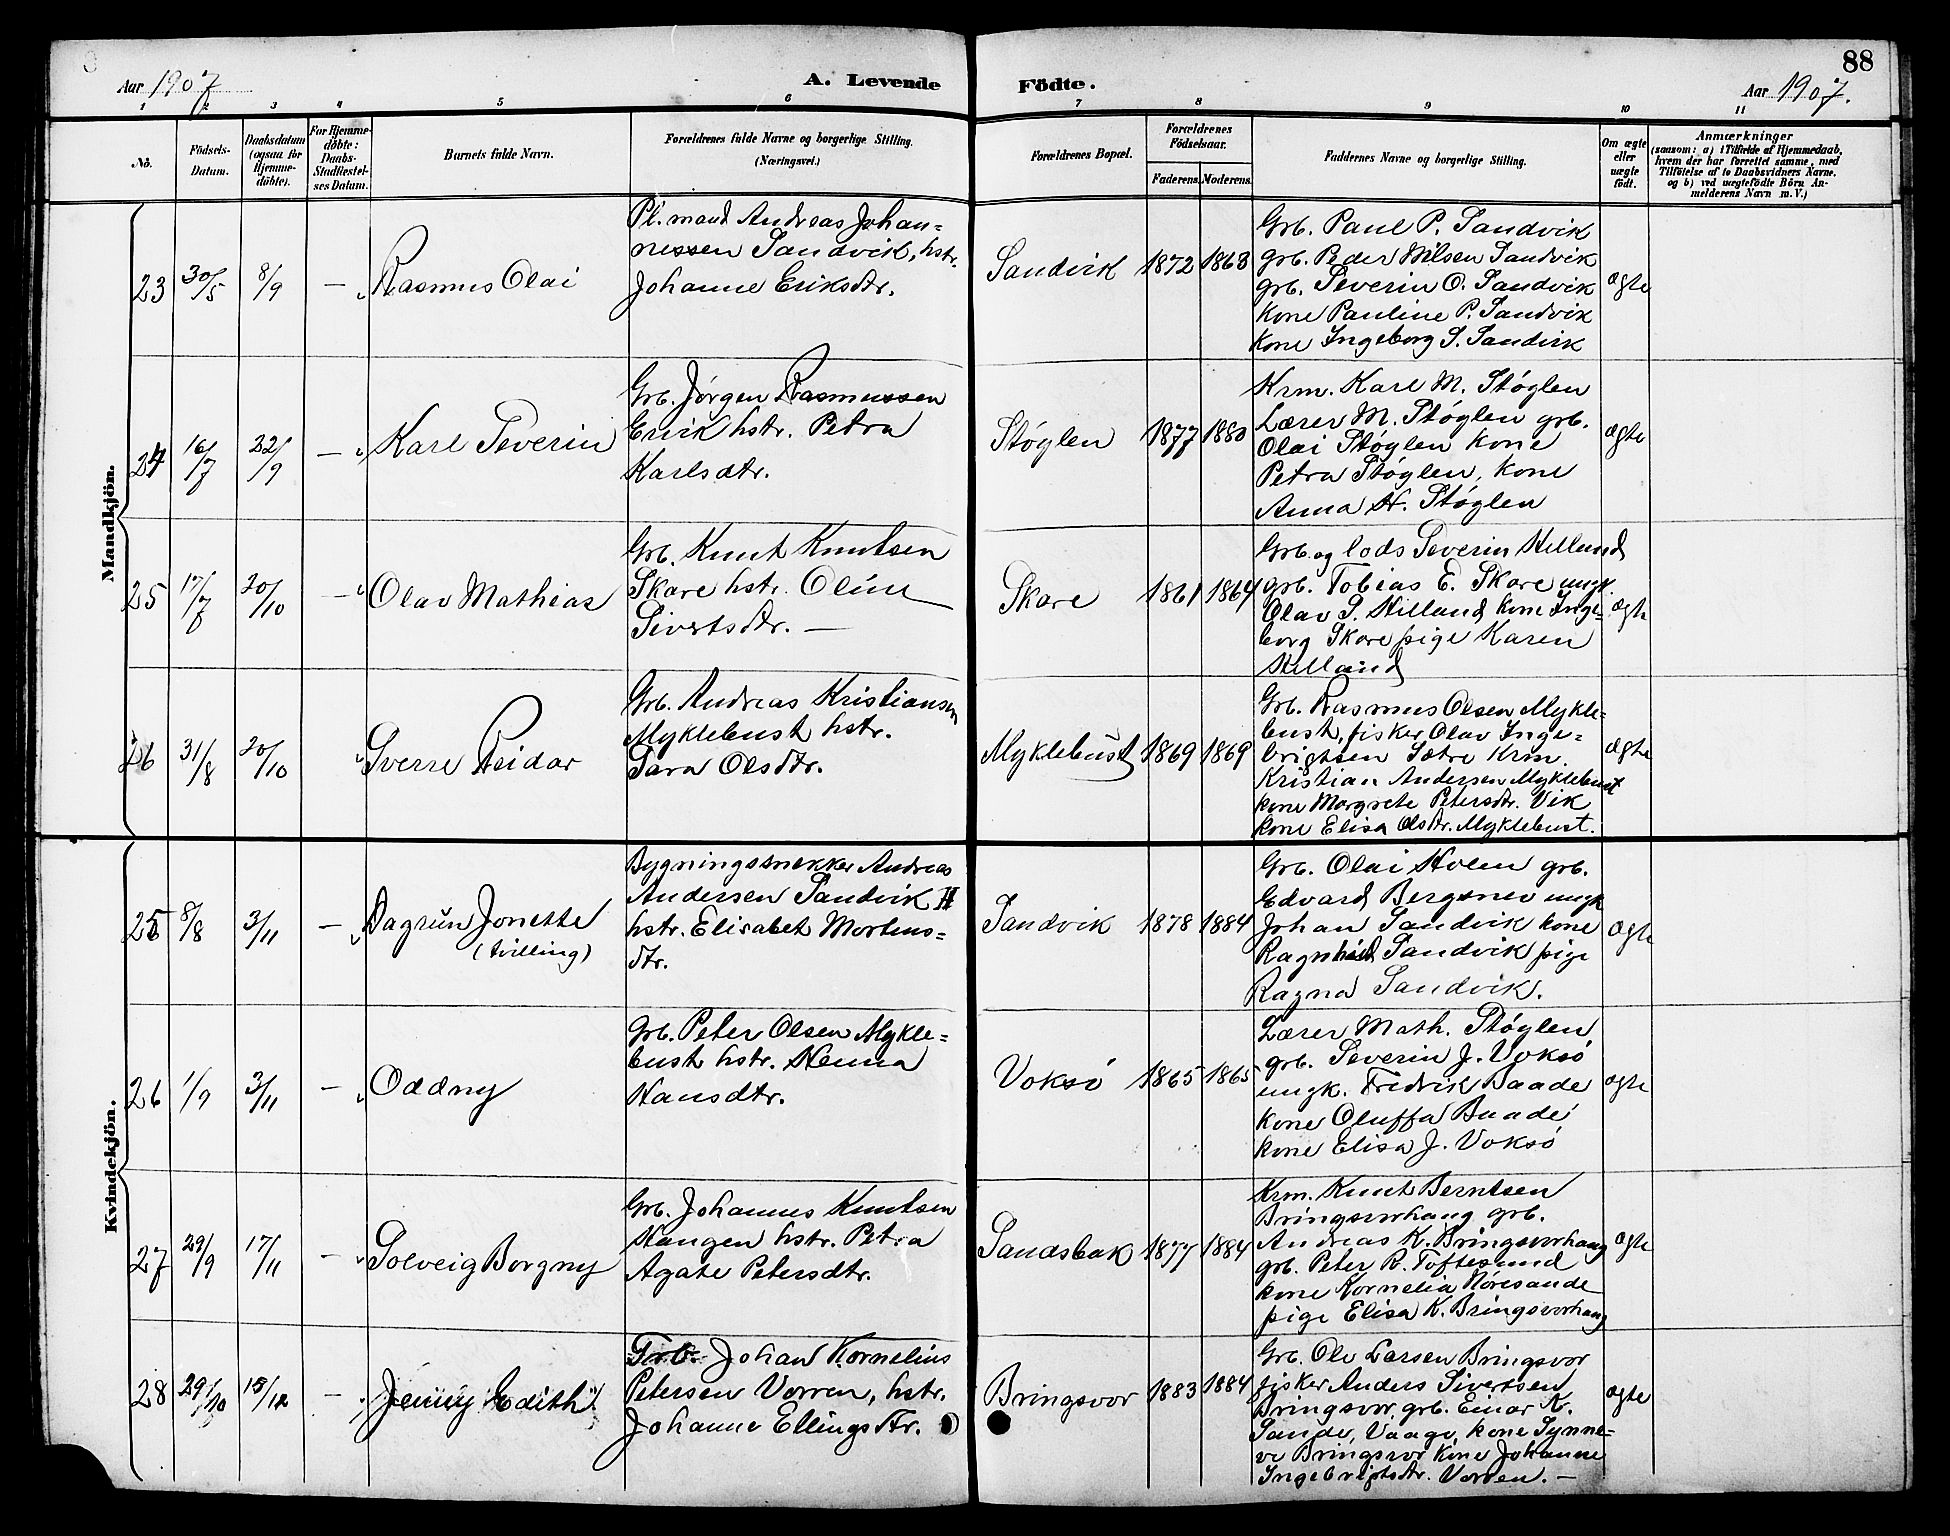 88
Aar 1907
A. Levende
Födte.
Aar 1907.
1 2 3 4 5 6 7 8 9 10 11
No.
Födsels-
Datum.
Daabsdatum
(ogsaa for
Hjemme-
döbte).
For Hjemme-
döbte:
Daabs-
Stadfæstel-
ses Datum.
Barnets fulde Navn.
Forældrenes fulde Navne og borgerlige Stilling.
(Næringsvei.)
Forældrenes Bopæl.
Forældrenes
Födselsaar.
Faderens.
Moderens.
Faddernes Navne og borgerlige Stilling.
Om ægte
eller
uægte
födt.
Anmærkninger
(saasom: a) i Tilfælde af Hjemmedaab,
hvem der har forrettet samme, med
Tilföielse af to Daabsvidners Navne,
og b) ved uægtefödte Börn An-
melderens Navn m. V.)
Mandkjön.
23 30/5 8/9 — Rasmus Olai
Pl. mand Andreas Johan-
nessen Sandvik, hstr.
Johanne Eriksdtr.
Sandvik 1872 1868
Grb. Paul P. Sandvik
grb. Peder Nilsen Sandvik
grb. Severin O. Sandvik
kone Pauline P. Sandvik
kone Ingeborg S. Sandvik
ægte
24 16/7 22/9 — Karl Severin
Grb. Jørgen Rasmussen
Ervik hstr. Petra
Karlsdtr.
Støylen 1877 1880
Krm. Karl M. Støylen
Lærer M. Støylen grb.
Olai Støylen kone
Petra Støylen, kone
Anna H. Støylen
ægte
25 17/7 20/10 — Olav Mathias
Grb. Knut Knutsen
Skare hstr. Oline
Sivertsdtr. —
Skare 1861 1864
Grb. og lods Severin Helland
grb. Tobias E. Skare ungk.
Olav S. Helland kone Inge-
borg Skare pige Karen
Helland
ægte
26 31/8 20/10 Sverre Reidar
Grb. Andreas Kristiansen
Myklebust hstr.
Sara Olsdtr.
Myklebust 1869 1869
Grb. Rasmus Olsen Mykle-
bust, fisker Olav Inge-
brigtsen Sætre Krm.
Kristian Andersen Myklebust
kone Margrete Petersdtr. Vik
kone Elisa Olsdtr. Myklebust.
ægte
Kvindekjön.
25 8/8 3/11 — Dagrun Jonette
(tvilling)
Bygningssnekker Andreas
Andersen Sandvik II
hstr. Elisabet Mortens-
dtr.
Sandvik 1878 1884
Grb. Olai Holen grb.
Edvard Bergsnev ungk
Johan Sandvik kone
Ragnhild Sandvik pige
Ragna Sandvik.
ægte
26 1/9 3/11 — Oddny
Grb. Peter Olsen Mykle-
bust hstr. Hanna
Hansdtr.
Voksø 1865 1865
Lærer Math. Støylen
grb. Severin J. Voksø
ungk. Fredrik Baade
kone Oluffa Baade
kone Elisa J. Voksø
ægte
27 29/9 17/11 — Solveig Borgny
Grb. Johannes Knutsen
Haugen hstr. Petra
Agate Petersdtr.
Sandsbak 1877 1884
Krm. Knut Berntsen
Bringsvorhaug grb.
Andreas K. Bringsvorhaug
grb. Peter R. Toftesund
kone Kornelia Nøresande
pige Elisa K. Bringsvorhaug
ægte
28 29/10 15/12 — Jenny Edith
Johan Kornelius
Petersen Vorren, hstr.
Johanne Ellingsdtr.
Bringsvor 1883 1884
Grb. Ole Larsen Bringsvor
fisker Anders Sivertsen
Bringsvor, grb. Einar K.
Sande, Vaage, kone Synne-
ve Bringsvor kone Johanne
Ingebrigtsdtr. Vorren. —
ægte